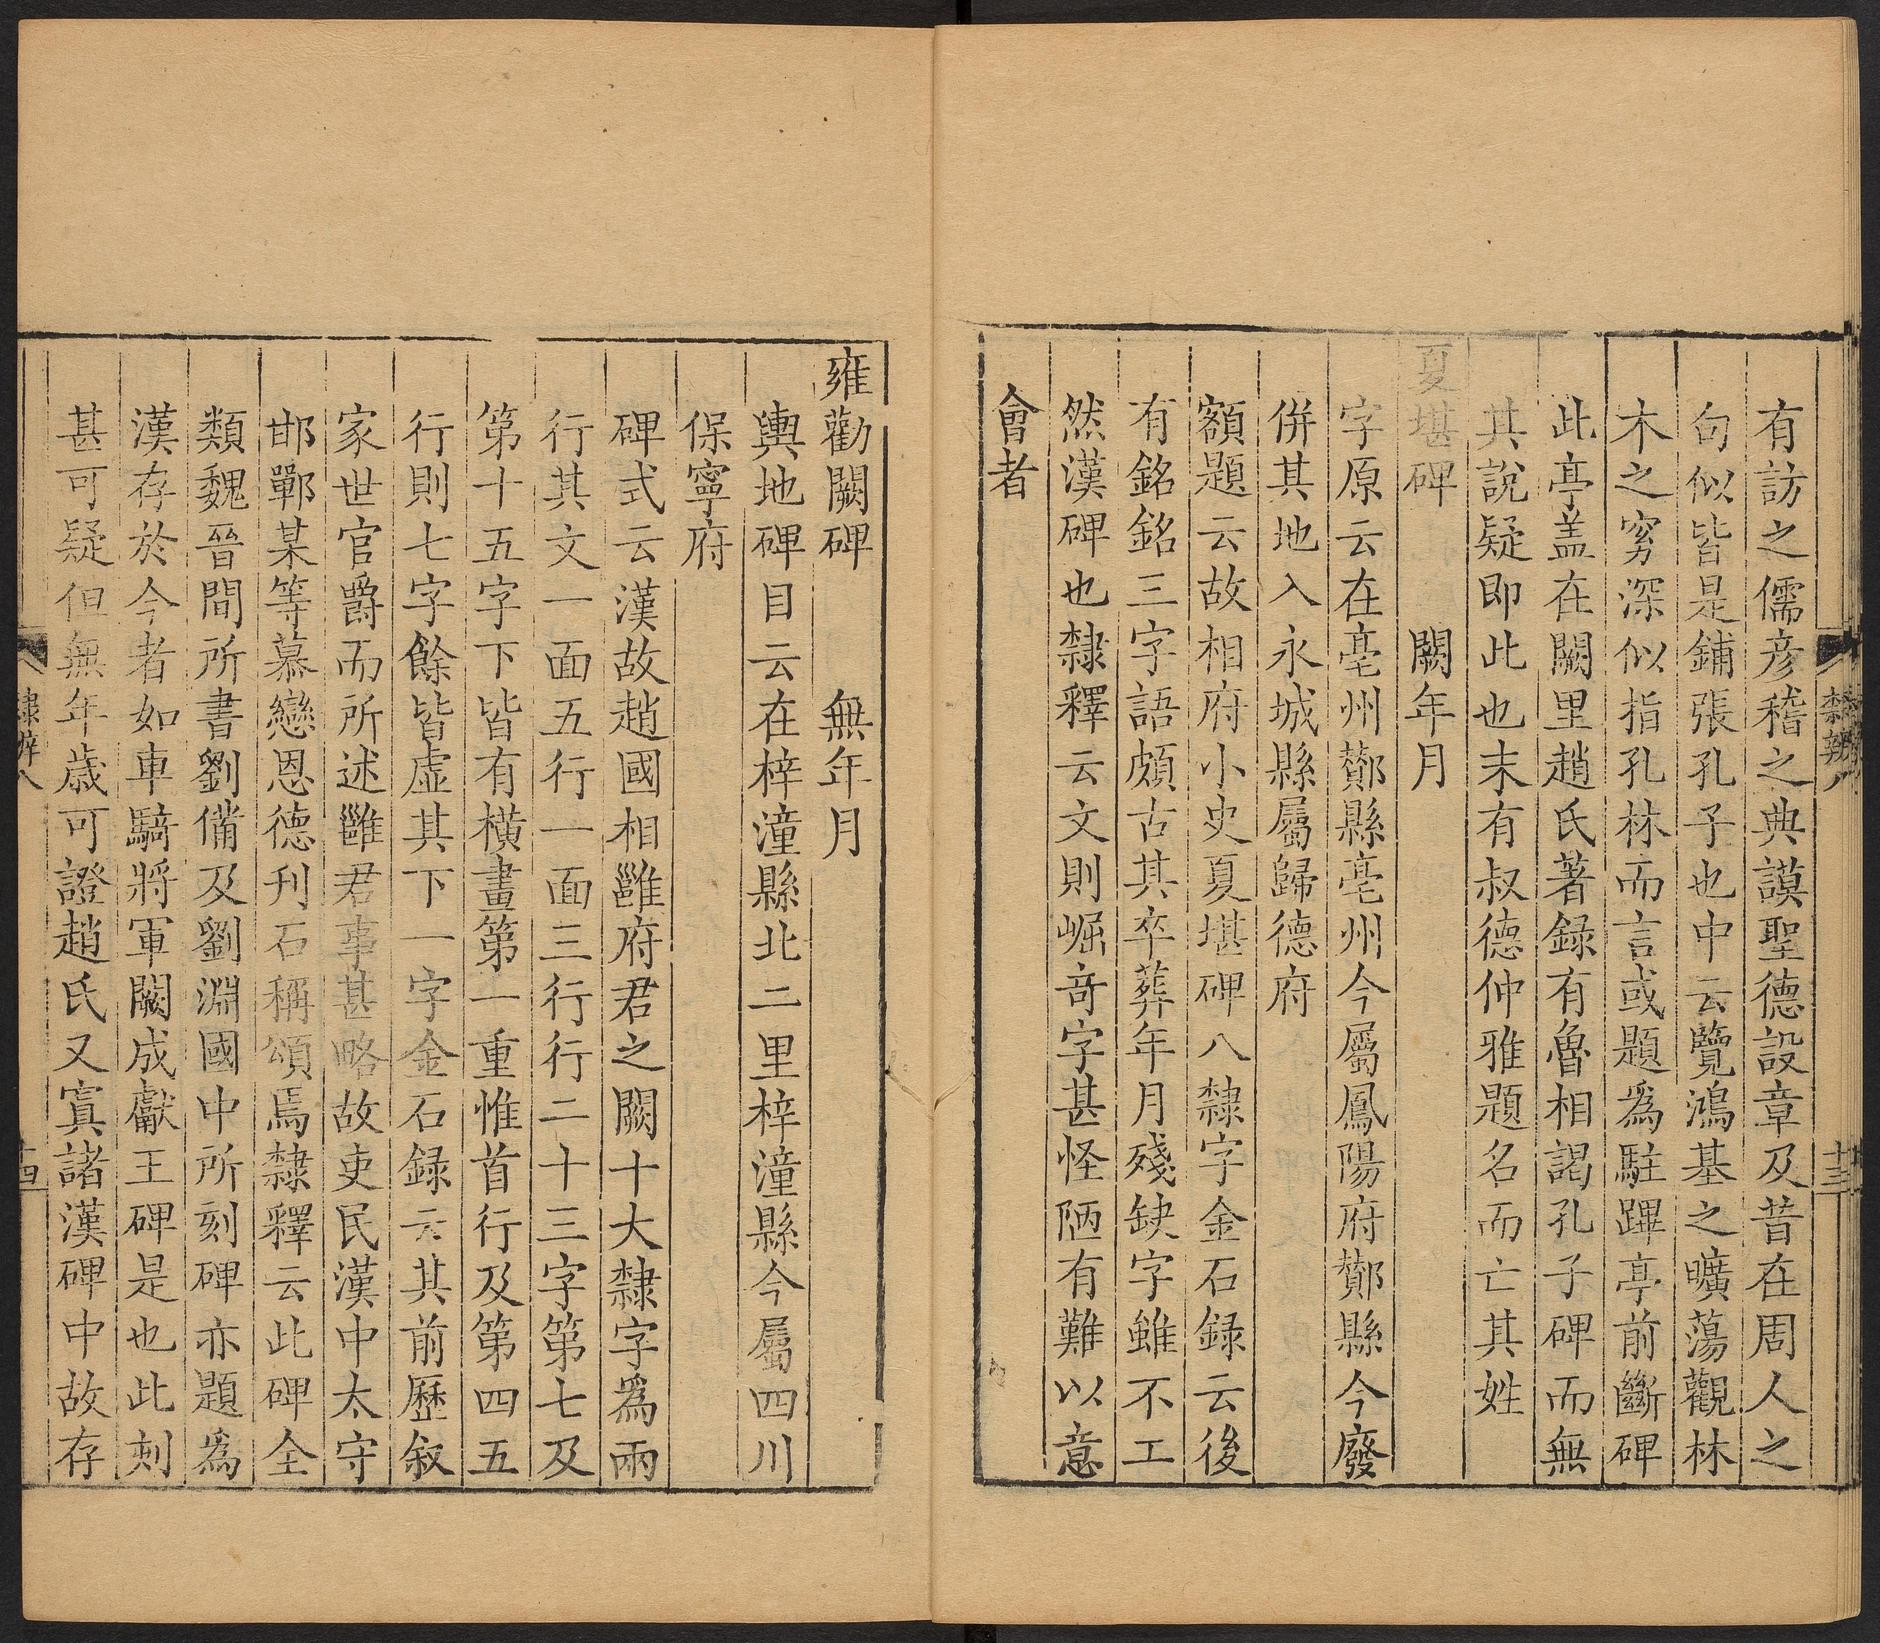 有訪之儒彦稽之典謨聖德設章及昔在周人之
句似皆是鋪張孔子也中云覽鴻基之曠蕩觀林
木之窮深似指孔林而言或題爲駐蹕亭前斷碑
此亭盖在闕里趙氏著録有魯相謁孔子碑而無
其說疑即此也末有叔德仲雅題名而亡其姓
夏堪碑 闕年月
字原云在亳州酇縣亳州今屬鳳陽府酇縣今廢
併其地入永城縣屬歸德府
額題云故相府小史夏堪碑八隸字金石録云後
有銘銘三字語頗古其卒葬年月殘缺字雖不工
然漢碑也隸釋云文則崛竒字甚怪陋有難以意
會者
雍勸闕碑 無年月
輿地碑目云在梓潼縣北二里梓潼縣今屬四川
保寧府
碑式云漢故趙國相雝府君之闕十大隸字爲兩
行其文一面五行一面三行行二十三字第七及
第十五字下皆有橫畫第一重惟首行及第四五
行則七字餘皆虛其下一字金石録云其前歷叙
家世官爵而所述雝君事甚略故吏民漢中太守
邯鄲某等慕戀恩德刋石稱頌焉隸釋云此碑全
類魏晉間所書劉備及劉淵國中所刻碑亦題爲
漢存於今者如車騎將軍闕成獻王碑是也此刻
甚可疑但無年歲可證趙氏又寘諸漢碑中故存